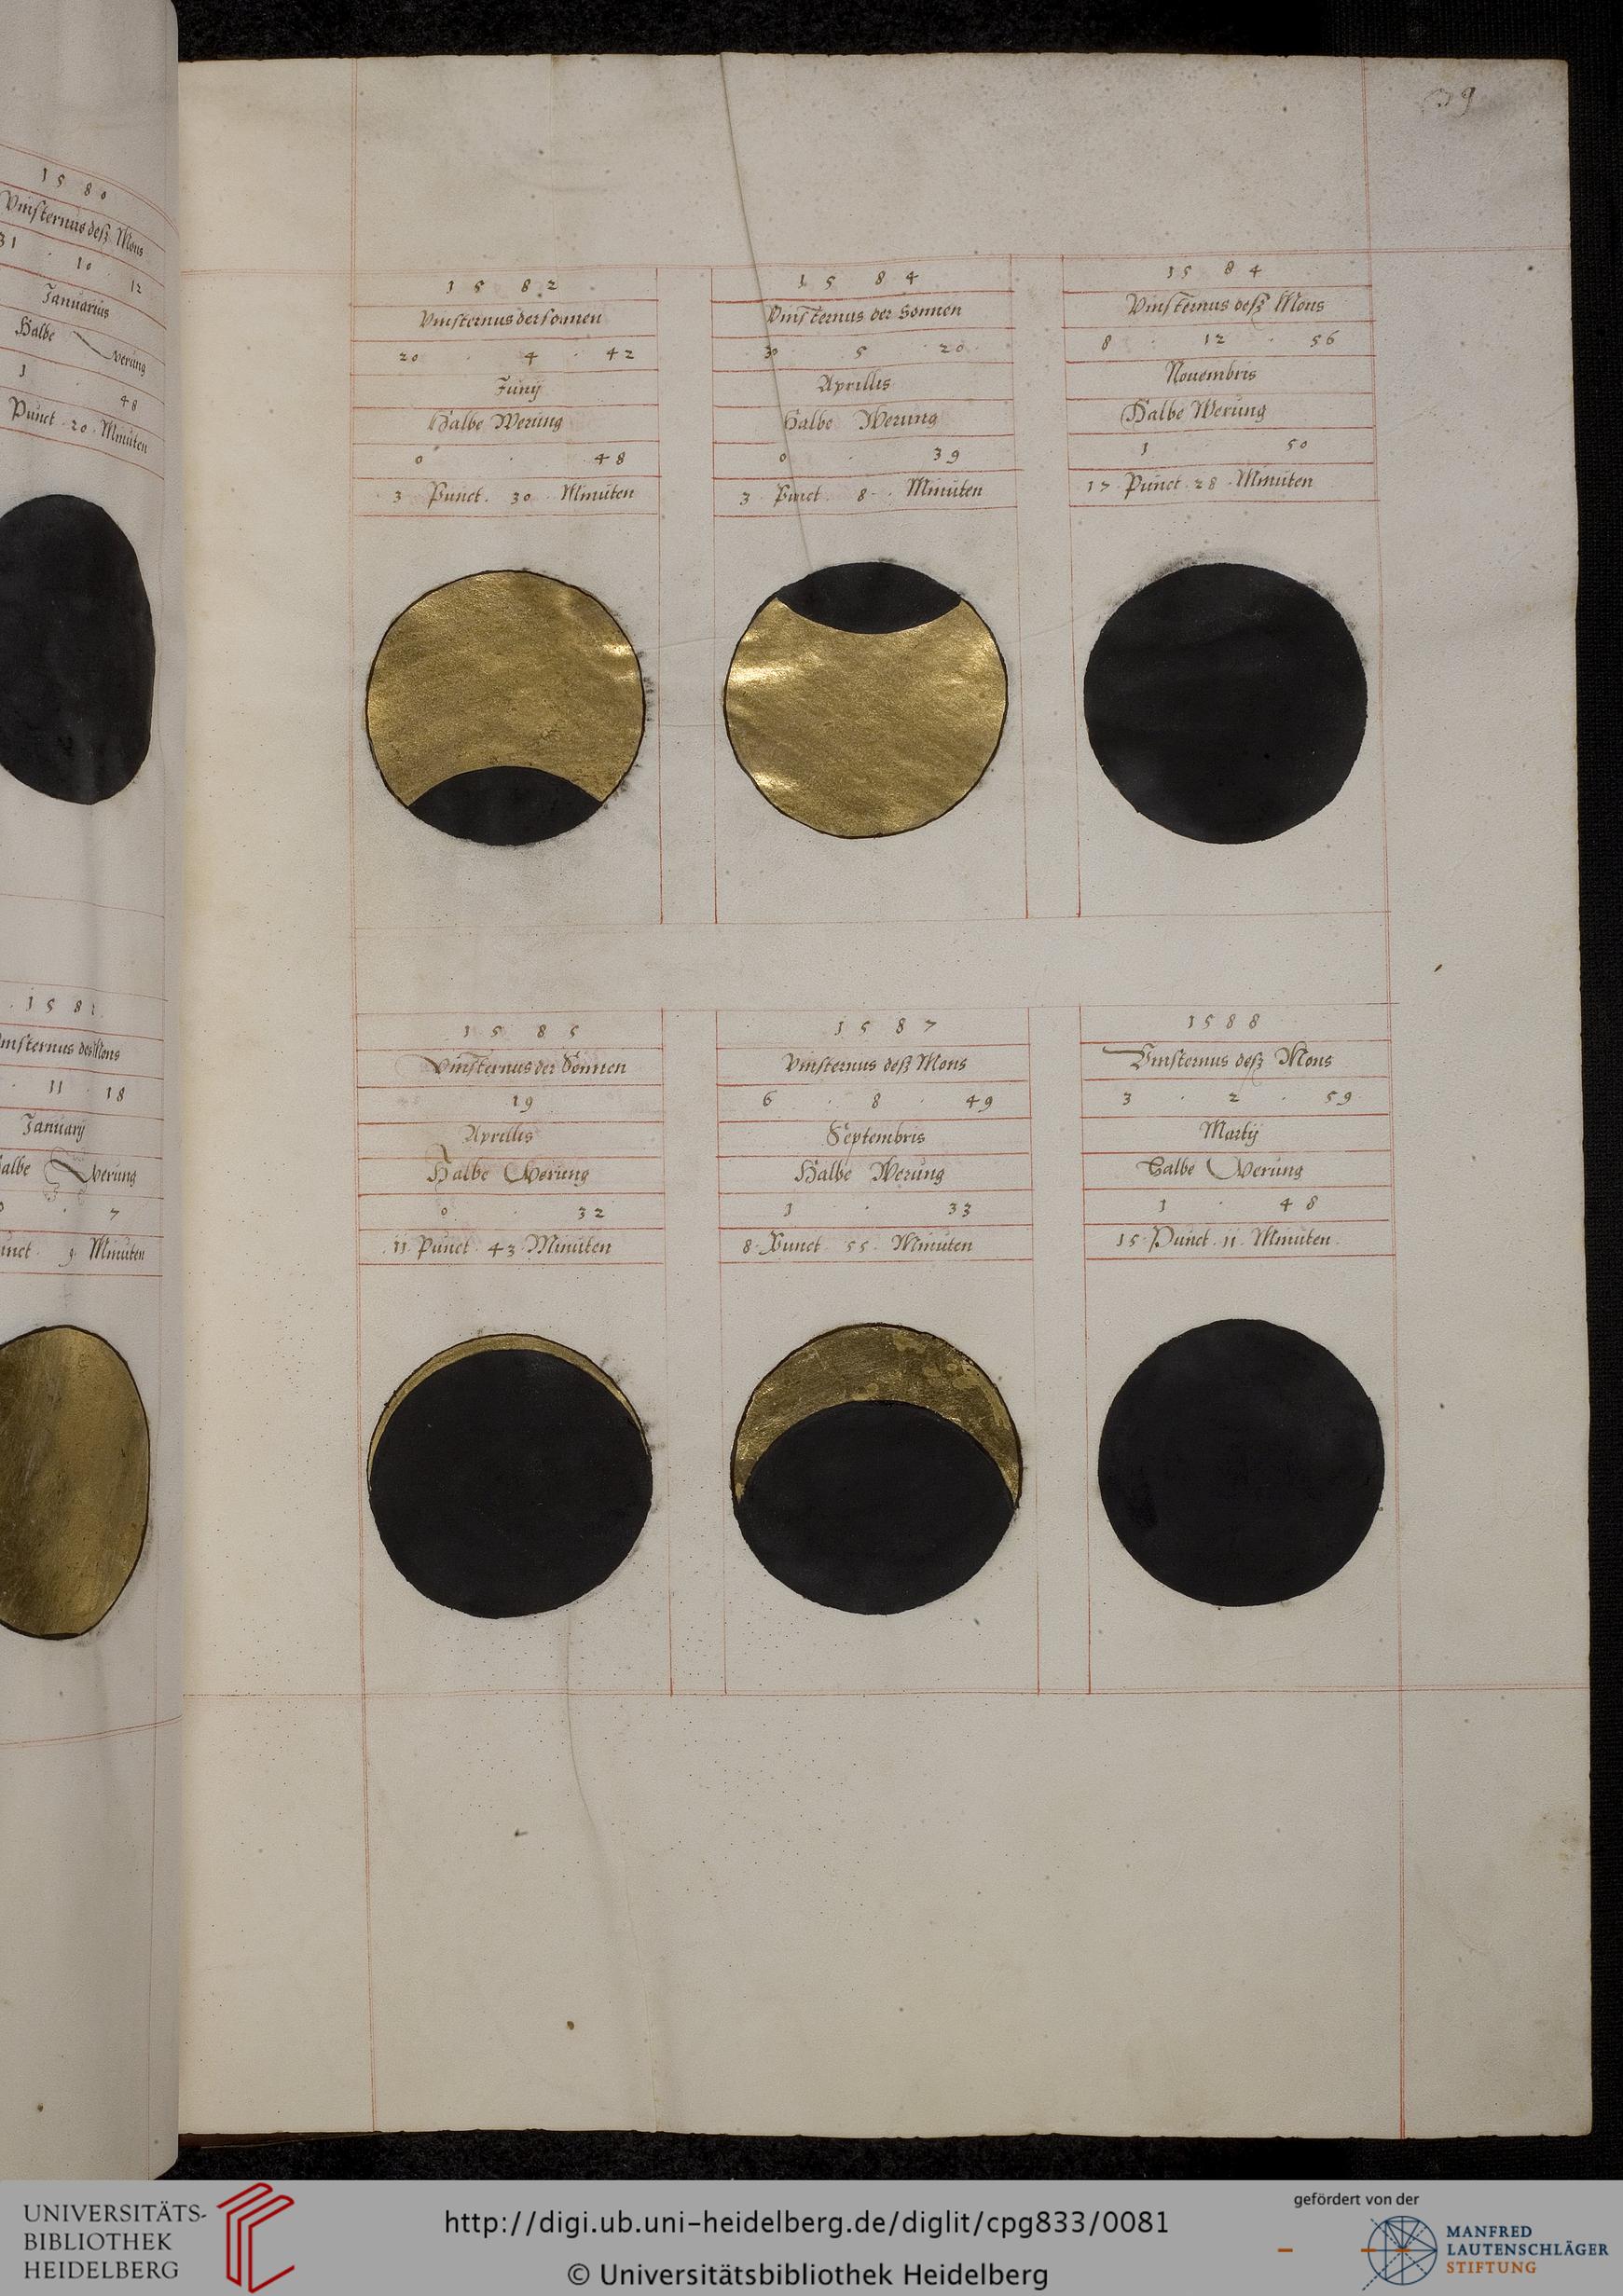 39
1580
Vinsternus deß Mons
31 · 10 · 12
Januarius
Halbe Werung
1 · 48
Punct · 20 · Minuten
1581
Vinsternus des Mons
11 · 18
Januarij
Halbe Werung
0 · 7
Punct 9 Minuten
1582
Vinsternus der Sonnen
20 · 4 · 42
Junij
Halbe Werung
0 · 48
3 Punct · 30 · Minuten
1584
Vinsternus der Sonnen
30 5 · 20
Aprillis
Halbe Werung
0 · 39
3 Punct 8 · Minuten
1584
Vinsternus deß Mons
8 · 12 · 56
Nouembris
Halbe Werung
1 50
17 Punct · 28 · Minuten
1585
Vinsternus der Sonnen
19
Aprillis
Halbe Werung
0 · 32
11 Punct · 43 · Minuten
1587
Vinsternus deß Mons
6 · 8 · 49
Septembris
Halbe Werung
1 · 33
8 · Punct · 55 · Minuten
1588
Vinsternus deß Mons
3 · 2 · 59
Martij
Halbe Werung
1 · 48
15 · Punct · 11 · Minuten
UNIVERSITÄTS-
BIBLIOTHEK
HEIDELBERG
http://digi.ub.uni-heidelberg.de/diglit/cpg833/0081
© Universitätsbibliothek Heidelberg
gefördert von der
MANFRED
LAUTENSCHLÄGER
STIFTUNG